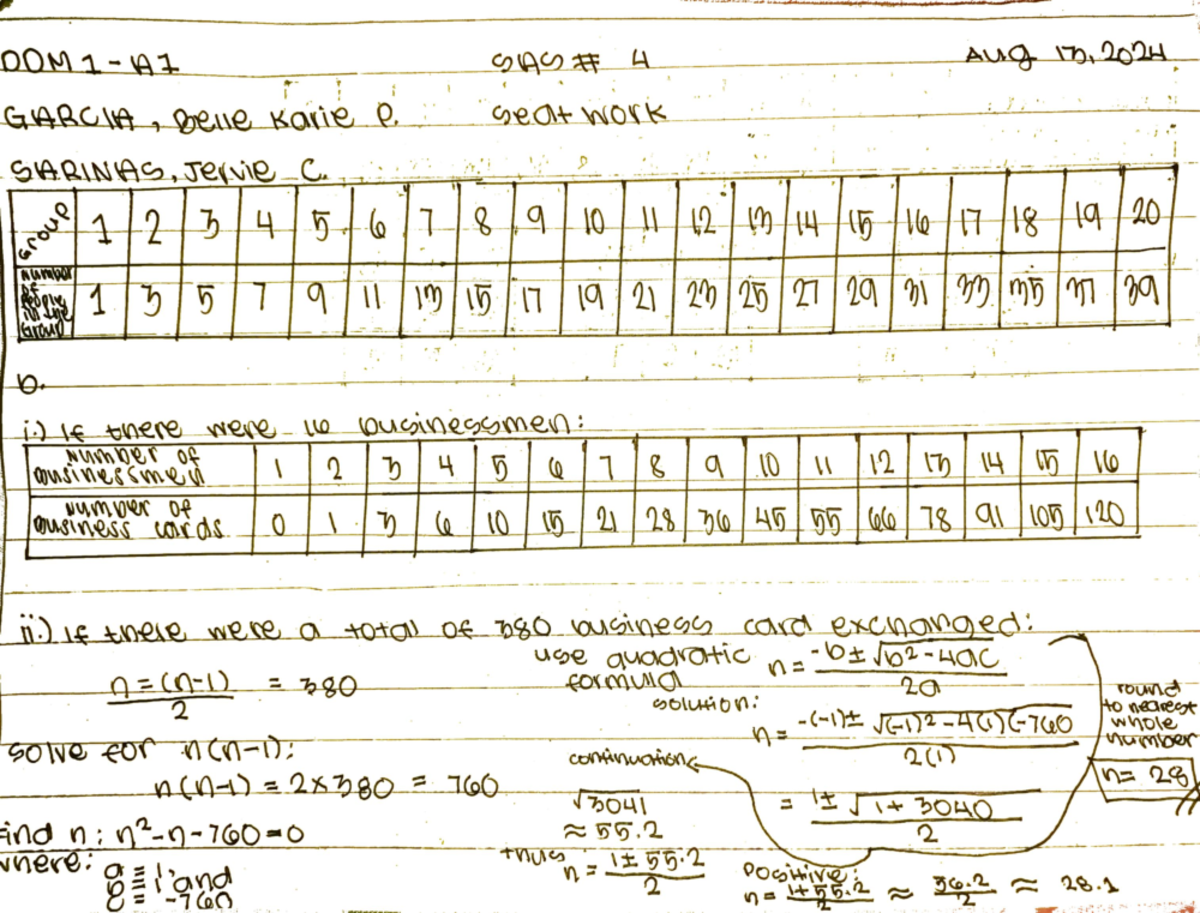 OOM 1 - A1 SAS # 4 Aug 13, 2024
GARCIA, Belle Karie P. Seat work
SARINAS, Jervie C.
Group 1 2 3 4 5 6 7 8 9 10 11 12 13 14 15 16 17 18 19 20
Number of People in the Group 1 3 5 7 9 11 13 15 17 19 21 23 25 27 29 31 33 35 37 39
b.
i.) If there were 16 businessmen:
Number of businessmen 1 2 3 4 5 6 7 8 9 10 11 12 13 14 15 16
Number of business cards 0 1 3 6 10 15 21 28 36 45 55 66 78 91 105 120
ii.) If there were a total of 380 business card exchanged:
n=(n-1)/2 = 380
Solve for n(n-1):
n(n-1) = 2x380 = 760
Find n: n²-n-760=0
where: a = 1
b = 1 and
c = -760
use quadratic formula
n = -b±√b²-4ac / 2a
solution:
n = -(-1)± √(-1)2-4(1)(-760 / 2(1)
= 1± √1+3040 / 2
continuation
√3041
≈ 55.2
thus
n = 1±55.2 / 2
positive:
n = 1+55.2 / 2 ≈ 56.2 / 2 ≈ 28.1
round
to nearest
whole
number
n= 28